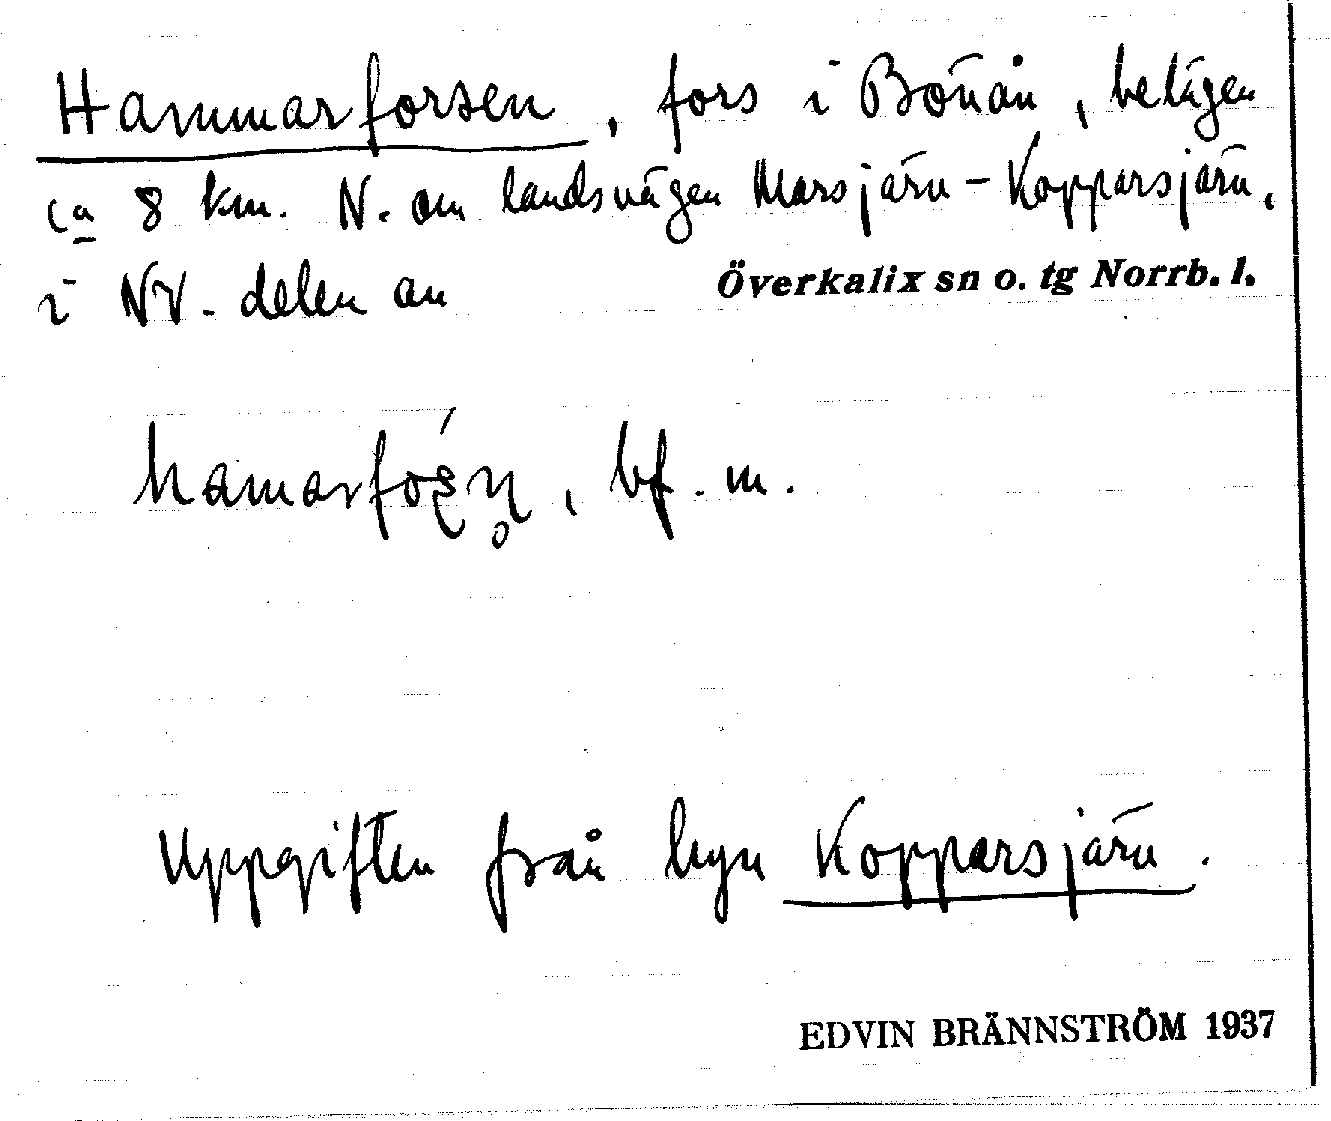 Hammarforsen, fors i Bönån, belägen
ca 8 km. N. om landsvägen Marsjärv - Kopparsjärv,
i NV. delen av Överkalix sn o. tg Norrb. l.
bf. m.
Uppgiften från byn Kopparsjärv.
EDVIN BRÄNNSTRÖM 1937